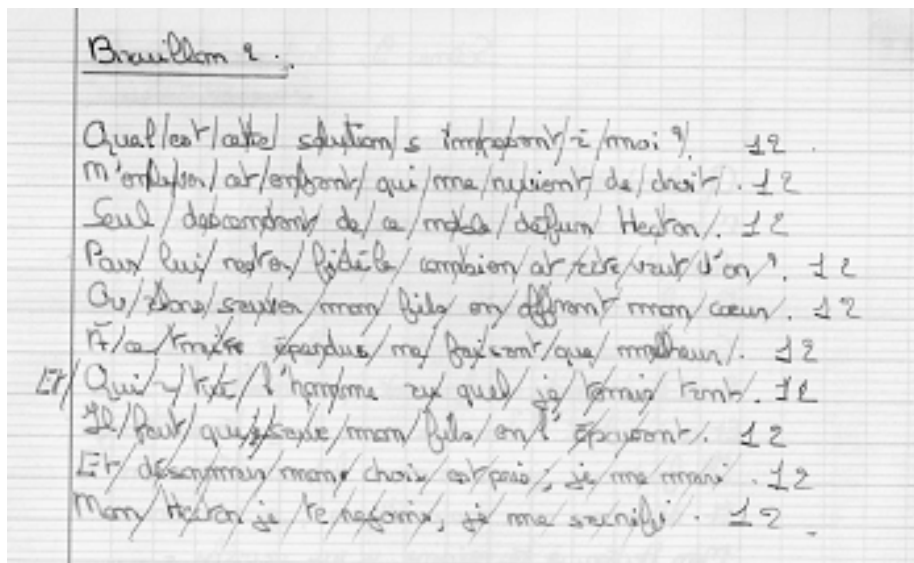 Brouillon 2 :
Quel/est/cette/ solution/ s'imposant/ à /moi ? 12
M'enlever/ cet/enfant/ qui/me/revient/ de/ droit/. 12
Seul/ descendant/ de/ ce/ noble/ défun/ Hector/. 12
Pour/ lui/ rester/ fidèle/ combien/ et/ vaut/ d'or ? 12
Ou/ dans/ sauver/ mon/ fils/ en/ offrant/ mon/ cœur/. 12
À/ ce/ traître/ éperdus/ ne/ faisant/ que/ malheur/. 12
Et/ Qui/ tué/ l'homme au quel/ je/ tenais/ tant/. 12
Il/ faut/ que/ mon/ fils/ en/ l'épousant/. 12
Et/ désormais/ mon/ choix/ est pris ; je/ me marie. 12
Mon/ Hector/ je/ te rejoins, je/ me sacrifie. 12